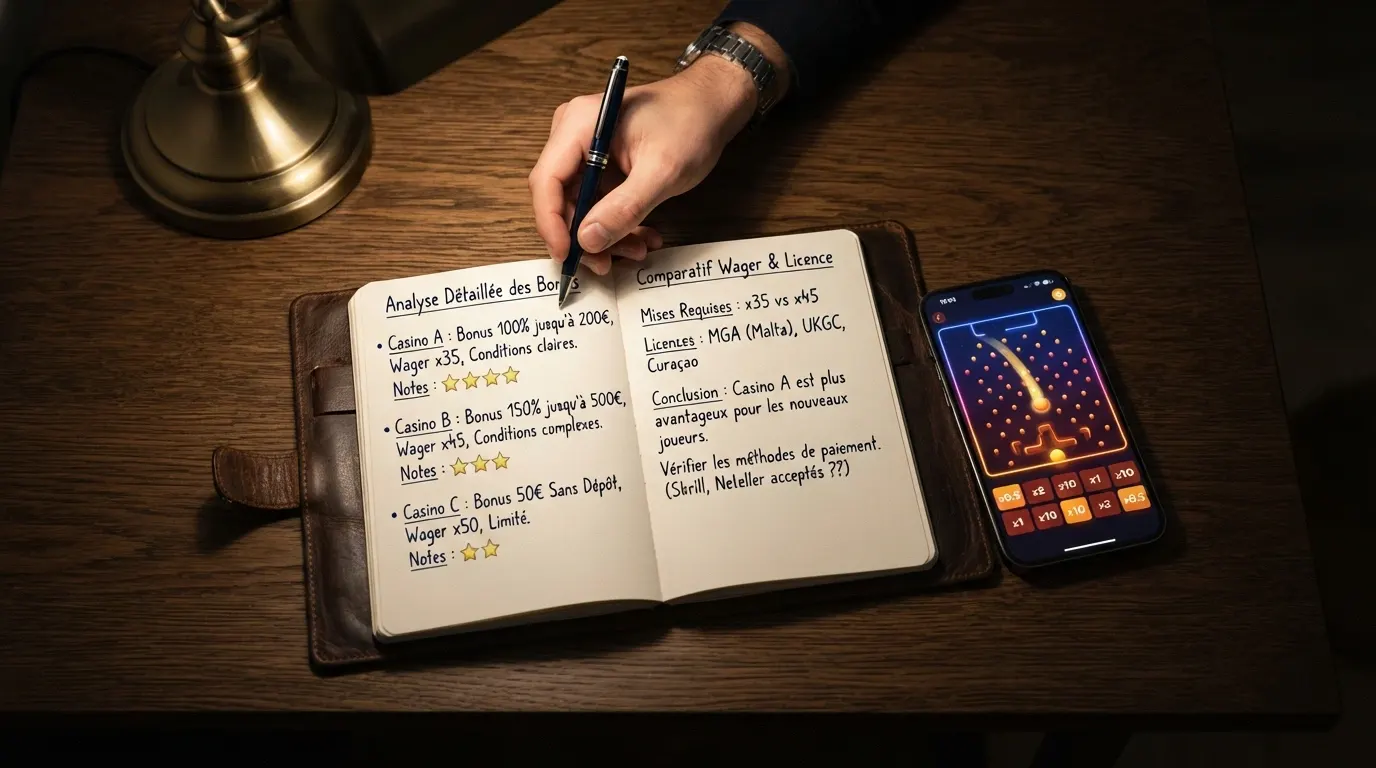 Analyse Détaillée des Bonus
• Casino A : Bonus 100% jusqu'à 200€,
Wager x35, Conditions claires.
Notes :
• Casino B : Bonus 150% jusqu'à 500€,
Wager x45, Conditions complexes.
Notes :
• Casino C : Bonus 50€ Sans Dépôt,
Wager x50, Limité.
Notes :
Comparatif Wager & Licence
Mises Requises : x35 vs x45
Licences : MGA (Malta), UKGC,
Curaçao
Conclusion : Casino A est plus
avantageux pour les nouveaux
joueurs.
Vérifier les méthodes de paiement.
(Skrill, Neteller acceptés ??)
x2 x1 x10
x1 x10 x10